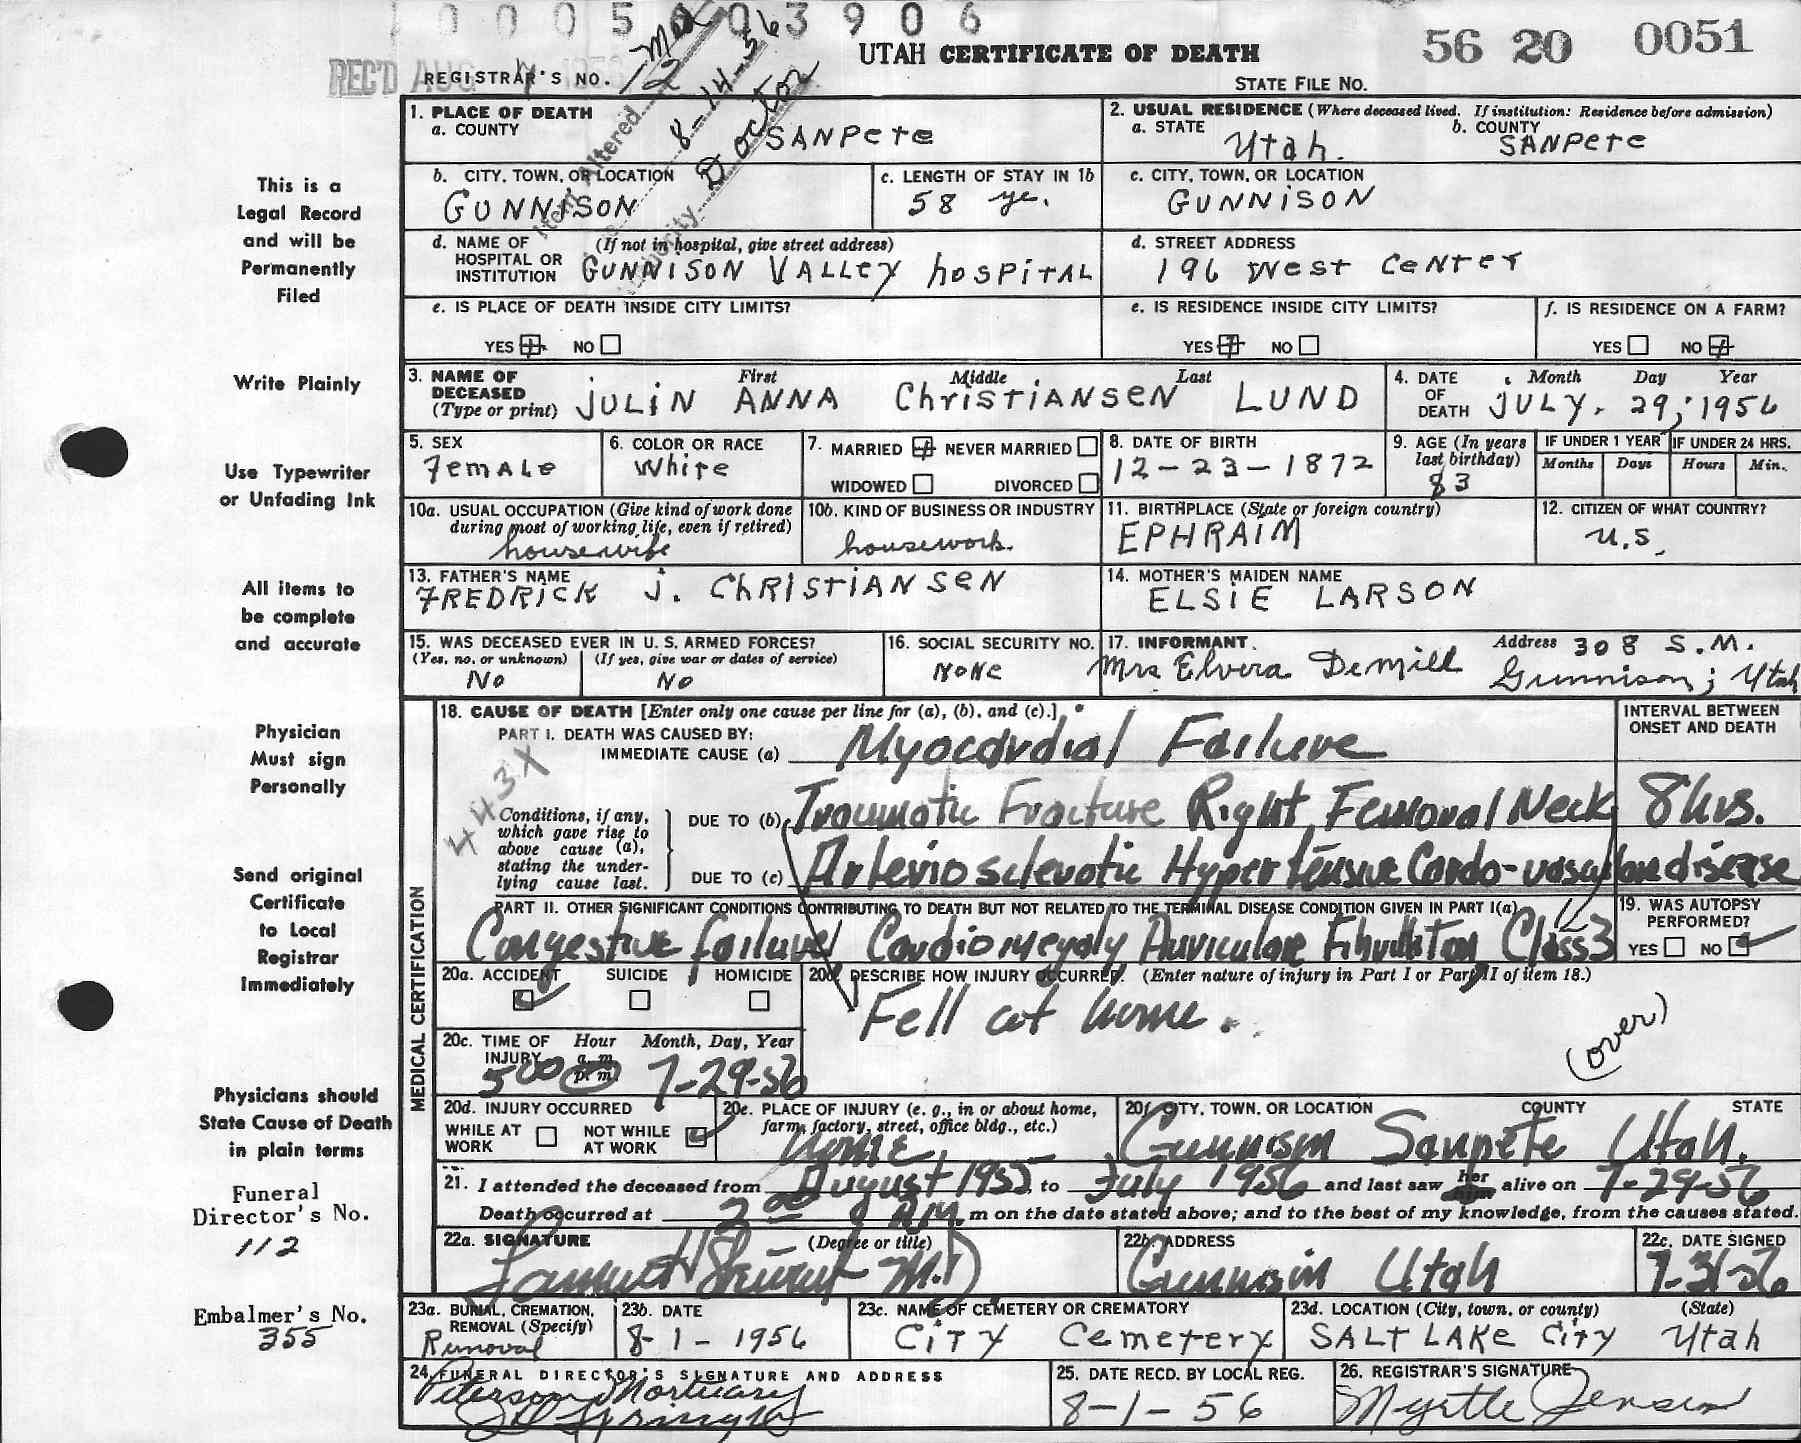 1 0 0 0 5 0 3 9 0 6
UTAH CERTIFICATE OF DEATH
56 20 0051
REC'D AUG
REGISTRAR'S NO. 12
STATE FILE NO.
Item Altered Med
8-14-56
Authority Doctor
This is a
Legal Record
and will be
Permanently
Filed
Write Plainly
Use Typewriter
or Unfading Ink
All items to
be complete
and accurate
Physician
Must sign
Personally
Send original
Certificate
to Local
Registrar
Immediately
Physicians should
State Cause of Death
in plain terms
Funeral
Director's No.
112
Embalmer's No.
355
1. PLACE OF DEATH
a. COUNTY SANPETE
2. USUAL RESIDENCE (Where deceased lived. If institution: Residence before admission)
a. STATE Utah. b. COUNTY SANPETE
b. CITY, TOWN, OR LOCATION GUNNISON
c. LENGTH OF STAY IN 1b 58 ye.
c. CITY, TOWN, OR LOCATION GUNNISON
d. NAME OF HOSPITAL OR INSTITUTION (If not in hospital, give street address) GUNNISON VALLEY HOSPITAL
d. STREET ADDRESS 196 West Center
e. IS PLACE OF DEATH INSIDE CITY LIMITS? YES NO
e. IS RESIDENCE INSIDE CITY LIMITS? YES NO
f. IS RESIDENCE ON A FARM? YES NO
3. NAME OF DECEASED (Type or print) First Middle Last JULIN ANNA ChristIANSEN LUND
4. DATE OF DEATH Month Day Year JULY, 29, 1956
5. SEX Female
6. COLOR OR RACE White
7. MARRIED NEVER MARRIED WIDOWED DIVORCED
8. DATE OF BIRTH 12-23-1872
9. AGE (In years last birthday) 83
IF UNDER 1 YEAR Months Days
IF UNDER 24 HRS. Hours Min.
10a. USUAL OCCUPATION (Give kind of work done during most of working life, even if retired) housewife
10b. KIND OF BUSINESS OR INDUSTRY housework.
11. BIRTHPLACE (State or foreign country) EPHRAIM
12. CITIZEN OF WHAT COUNTRY? U.S.
13. FATHER'S NAME FREDRICK J. CHRISTIANSEN
14. MOTHER'S MAIDEN NAME ELSIE LARSON
15. WAS DECEASED EVER IN U. S. ARMED FORCES? (Yes, no, or unknown) No (If yes, give war or dates of service) No
16. SOCIAL SECURITY NO. None
17. INFORMANT Mrs Elvera DeMill Address 308 S.M. Gunnison; Utah
MEDICAL CERTIFICATION
18. CAUSE OF DEATH [Enter only one cause per line for (a), (b), and (c).]
INTERVAL BETWEEN ONSET AND DEATH
PART I. DEATH WAS CAUSED BY:
IMMEDIATE CAUSE (a) Myocardial Failure
443X
Conditions, if any, which gave rise to above cause (a), stating the underlying cause last.
DUE TO (b) Traumatic Fracture Right Femoral Neck 8 hrs.
DUE TO (c) Arteriosclerotic Hypertensive Cardo-vascular disease
PART II. OTHER SIGNIFICANT CONDITIONS CONTRIBUTING TO DEATH BUT NOT RELATED TO THE TERMINAL DISEASE CONDITION GIVEN IN PART I(a)
Congestive failure Cardiomegaly Auricular Fibrillation Class 3
19. WAS AUTOPSY PERFORMED? YES NO
20a. ACCIDENT SUICIDE HOMICIDE
20b. DESCRIBE HOW INJURY OCCURRED. (Enter nature of injury in Part I or Part II of item 18.)
Fell at home.
(over)
20c. TIME OF INJURY Hour Month, Day, Year 5 00 a. m. p. m. 7-29-56
20d. INJURY OCCURRED WHILE AT WORK NOT WHILE AT WORK
20e. PLACE OF INJURY (e. g., in or about home, farm, factory, street, office bldg., etc.) Home
20f. CITY, TOWN, OR LOCATION COUNTY STATE
Gunnison Sanpete Utah.
21. I attended the deceased from August 1955, to July 1956 and last saw her him alive on 7-29-56
Death occurred at 2 00 P.M. m on the date stated above; and to the best of my knowledge, from the causes stated.
22a. SIGNATURE (Degree or title) M.D
22b. ADDRESS Gunnison Utah
22c. DATE SIGNED 7-31-56
23a. BURIAL, CREMATION, REMOVAL (Specify) Removal
23b. DATE 8-1-1956
23c. NAME OF CEMETERY OR CREMATORY CITY Cemetery
23d. LOCATION (City, town, or county) (State) SALT LAKE CITY Utah
24. FUNERAL DIRECTOR'S SIGNATURE AND ADDRESS
Peterson Mortuary
25. DATE RECD. BY LOCAL REG. 8-1-56
26. REGISTRAR'S SIGNATURE Myrtle Jensen